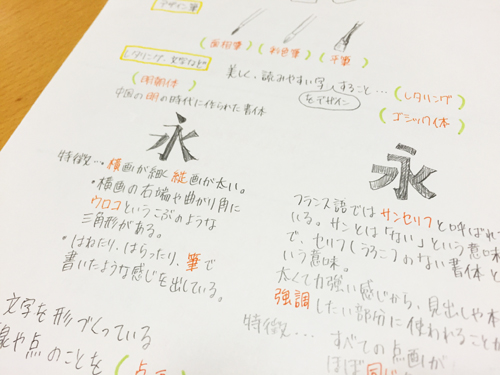 デザイン筆
(面相筆) (彩色筆) (平筆)
レタリング、文字など
美しく、読みやすい字にすること… (レタリング)
をデザイン
(明朝体)
中国の明の時代に作られた書体
(ゴシック体)
永
永
特徴…横画が細く縦画が太い。
・横画の右端や曲がり角に
ウロコというこぶのような
三角形がある。
・はねたり、はらったり、筆で
書いたような感じを出している。
文字を形づくっている
線や点のことを(点画
フランス語ではサンセリフと呼ばれて
いる。サンとは「ない」という意味
で、セリフ(うろこ)のない書体と
いう意味。
太くて力強い感じから、見出しや本
強調したい部分に使われることが
特徴…すべての点画が
ほぼ同じ